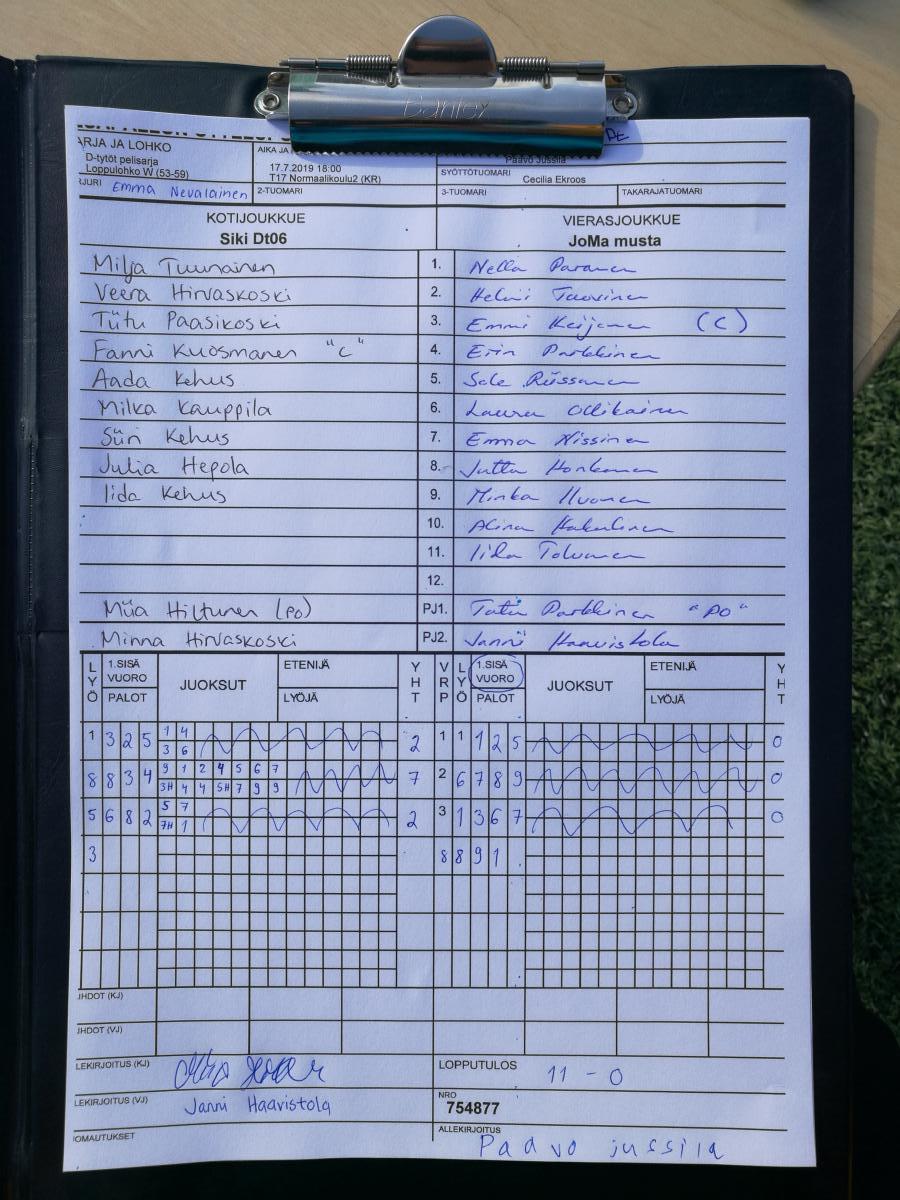 Bantex
SARJA JA LOHKO
D-tytöt pelisarja
Loppulohko W (53-59)
AIKA JA
17.7.2019 18:00
T17 Normaalikoulu2 (KR)
Paavo Jussila
SYÖTTÖTUOMARI
Cecilia Ekroos
Emma Nevalainen
2-TUOMARI
3-TUOMARI
TAKARAJATUOMARI
KOTIJOUKKUE
Siki Dt06
VIERASJOUKKUE
JoMa musta
Milja Tuunainen 1. Nella Paranen
Veera Hirvaskoski 2. Helmi
Tiitu Paasikoski 3. Emmi Keijonen (C)
Fanni Kuosmanen "C" 4. Erin Parkkinen
Aada Kehus 5. Rissanen
Milka Kauppila 6. Laura Ollikainen
Siiri Kehus 7. Emma Nissinen
Julia Hepola 8. Jutta Honkanen
Iida Kehus 9. Minka Iivonen
10. Alina Hakulinen
11. Iida Tolvanen
12.
Miia Hiltunen (po) PJ1. Parkkinen "PO"
Minna Hirvaskoski PJ2. Janni Haavistola
LYÖ 1.SISÄ VUORO PALOT JUOKSUT ETENIJÄ LYÖJÄ YHT VRP LYÖ 1.SISÄ VUORO PALOT JUOKSUT ETENIJÄ LYÖJÄ YHT
1 3 2 5 1 4 2 1 1 1 2 5 0
3 6
8 8 3 4 9 1 2 4 5 6 7 7 2 6 7 8 9 0
3H 4 4 5H 7 9 9
5 6 8 2 5 7 2 3 1 3 6 7 0
7H 1
3 8 8 9 1
JHDOT (KJ)
JHDOT (VJ)
LEKIRJOITUS (KJ)
LOPPUTULOS
11 - 0
LEKIRJOITUS (VJ)
Janni Haavistola
NRO
754877
OMAUTUKSET
ALLEKIRJOITUS
Paavo jussila